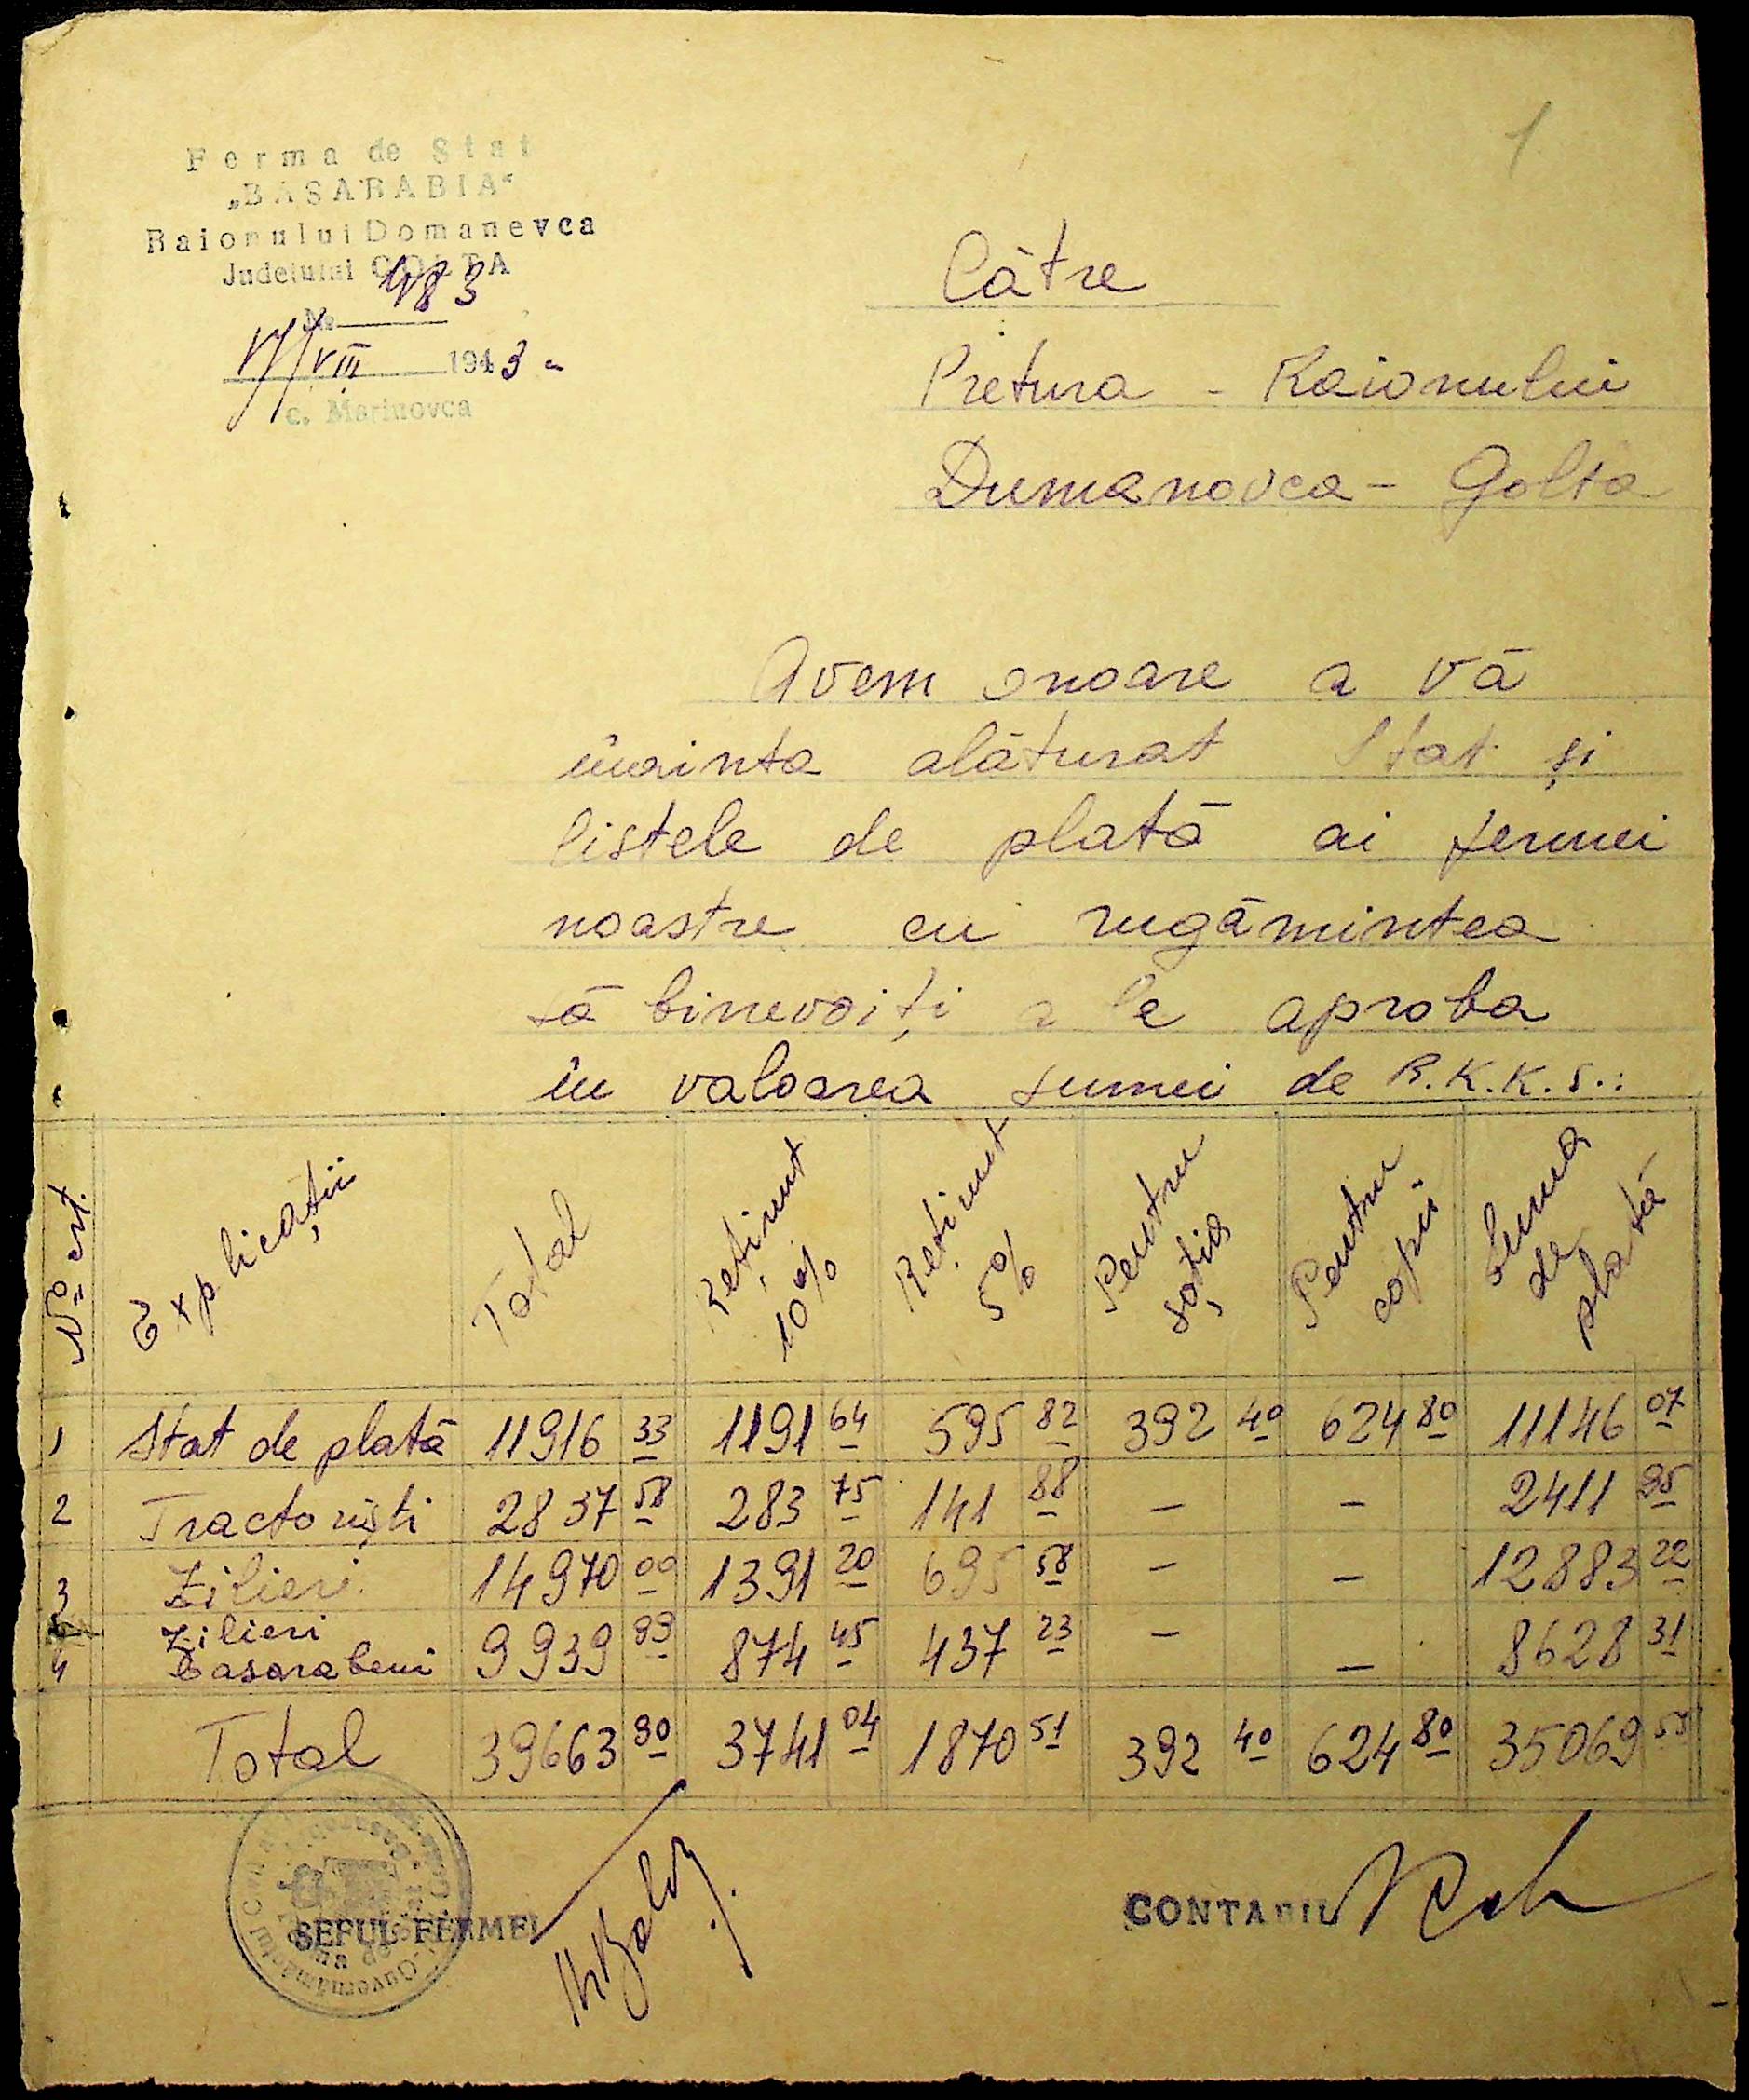 1
Ferma de Stat
„BASARABIA“
Raionului Domanevca
Județului GOLTA
No 483
VIII 1943 -
c. Marinovca
Către
Pretura - Raionului
Dumanovca - Golta
Avem onoare a vă
înainta alăturat Stat și
listele de plată ai fermei
noastre cu rugămintea
să binevoiți a le aproba
în valoarea sumei de R.K.K.S.:
No crt. Explicații Total Reținut 10% Reținut 5% Pentru soția Pentru copii Suma de plată
1 Stat de plată 11916 33 1191 64 595 82 392 40 624 80 11146 07
2 Tractoriști 2837 58 283 75 141 88 — — 2411 95
3 Zilieri 14970 00 1391 20 695 58 — — 12883 22
4 Zilieri basarabeni 9939 99 874 45 437 23 — — 8628 31
Total 39663 90 3741 04 1870 51 392 40 624 80 35069 55
ȘEFUL FERMEI
CONTABIL